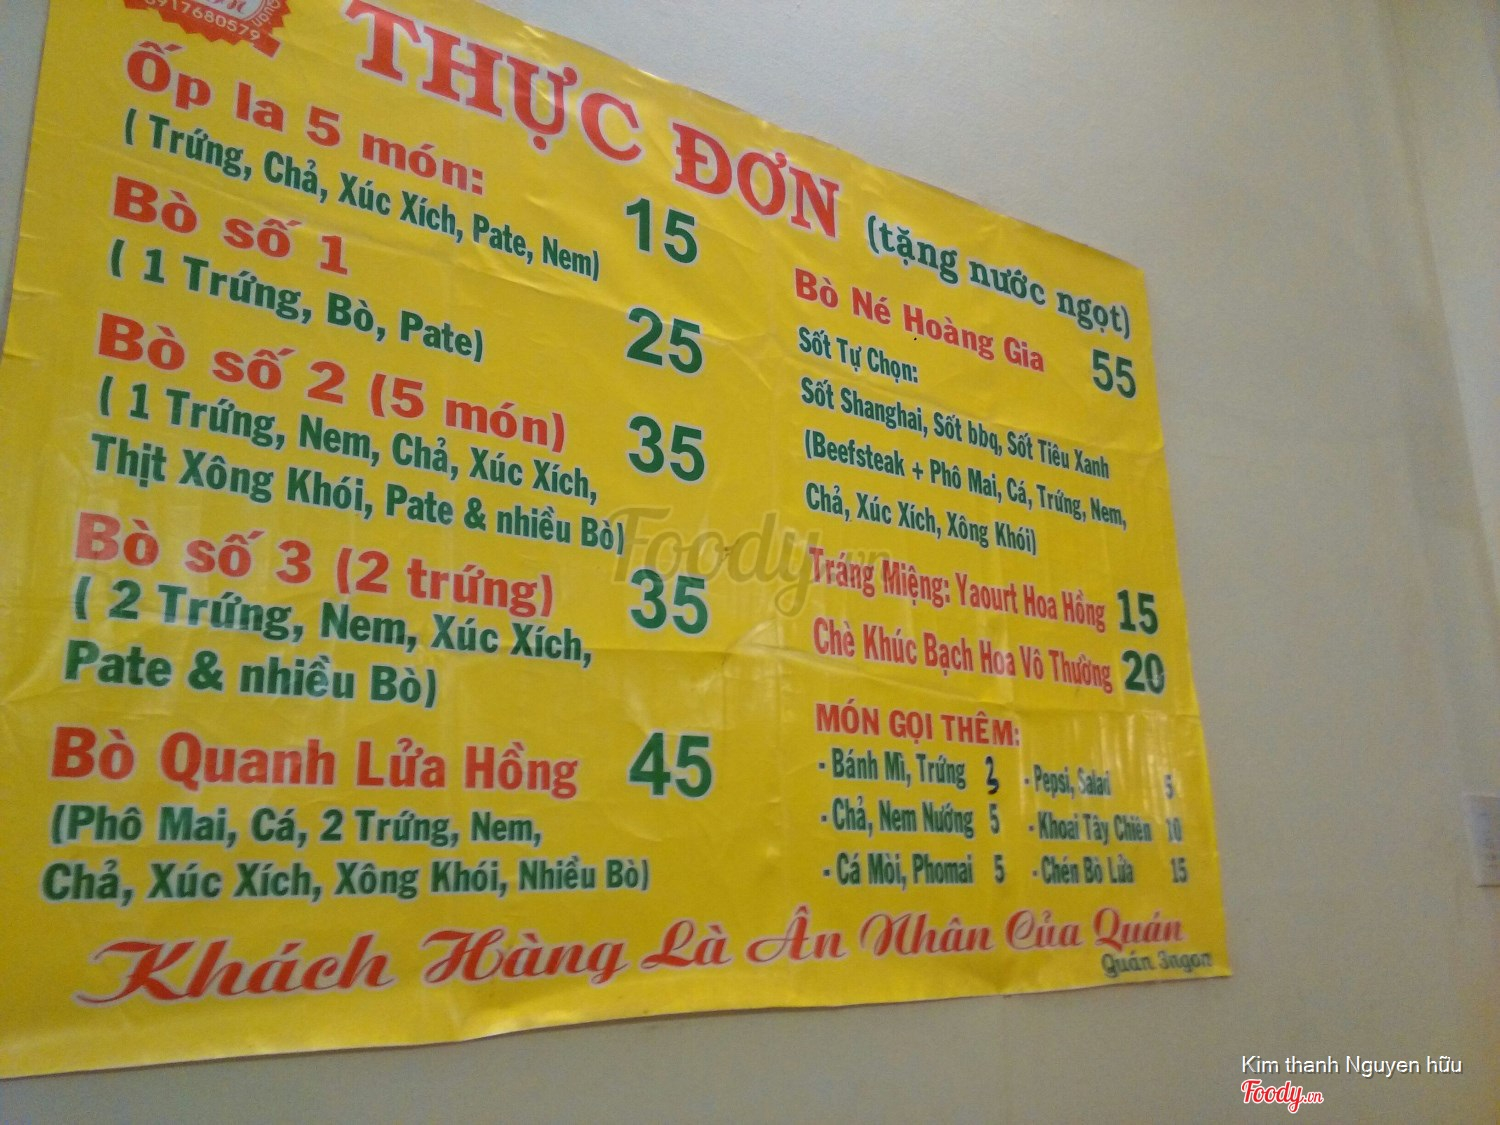 0917680579
THỰC ĐƠN
(tặng nước ngọt)
Ốp la 5 món:
15
( Trứng, Chả, Xúc Xích, Pate, Nem)
Bò số 1
25
( 1 Trứng, Bò, Pate)
Bò số 2 (5 món)
35
( 1 Trứng, Nem, Chả, Xúc Xích,
Thịt Xông Khói, Pate & nhiều Bò)
Bò số 3 (2 trứng)
35
( 2 Trứng, Nem, Xúc Xích,
Pate & nhiều Bò)
Bò Quanh Lửa Hồng
45
(Phô Mai, Cá, 2 Trứng, Nem,
Chả, Xúc Xích, Xông Khói, Nhiều Bò)
Bò Né Hoàng Gia
55
Sốt Tự Chọn:
Sốt Shanghai, Sốt bbq, Sốt Tiêu Xanh
(Beefsteak + Phô Mai, Cá, Trứng, Nem,
Chả, Xúc Xích, Xông Khói)
Tráng Miệng: Yaourt Hoa Hồng 15
Chè Khúc Bạch Hoa Vô Thường 20
MÓN GỌI THÊM:
- Bánh Mì, Trứng 3 - Pepsi, Salad 5
- Chả, Nem Nướng 5 - Khoai Tây Chiên 10
- Cá Mòi, Phomai 5 - Chén Bò Lửa 15
Khách Hàng Là Ân Nhân Của Quán
Quán 3ngon
Foody.vn
Kim thanh Nguyen hữu
Foody.vn